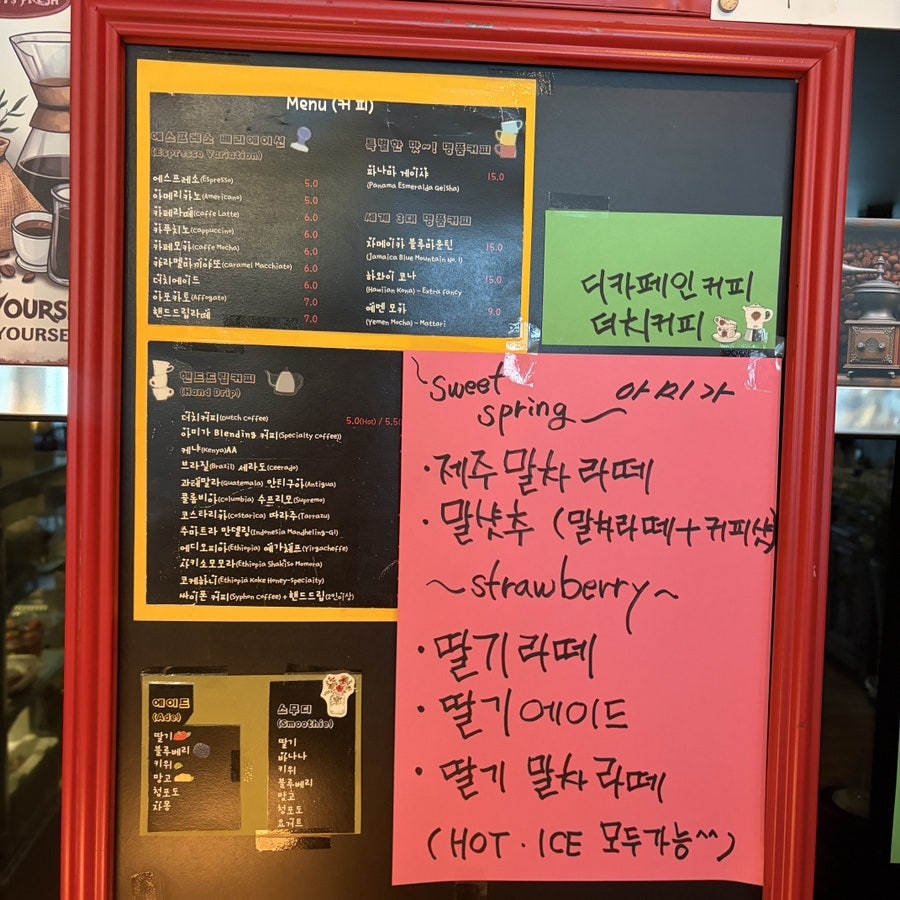 YOURS
YOURSE
Menu (커피)
에스프레소 베리에이션
(Espresso Variation)
에스프레소(Espresso) 5.0
아메리카노(Americano) 5.0
카페라떼(Caffe Latte) 6.0
카푸치노(cappuccino) 6.0
카페모카(Caffe Mocha) 6.0
카라멜마끼야또(Caramel Macchiato) 6.0
더치에이드 6.0
아포카토(Affogato) 7.0
핸드드립라떼 7.0
특별한 맛~! 명품커피
파나마 게이샤 15.0
(Panama Esmeralda Geisha)
세계 3대 명품커피
자메이카 블루마운틴 15.0
(Jamaica Blue Mountain No.1)
하와이 코나 15.0
(Hawiian Kona) - Extra fancy
예멘 모카 9.0
(Yemen Mocha) - Mattari
디카페인커피
더치커피
핸드드립커피
(Hand Drip)
더치커피(Dutch Coffee) 5.0(Hot) / 5.5(
아미가 Blending 커피(Specialty Coffee))
케냐(Kenya)AA
브라질(Brazil) 세라도(Ceerado)
과테말라(Guatemala) 안티구아(Antigua)
콜롬비아(Columbia) 수프리모(Supremo)
코스타리카(Costarica) 따라주(Tarrazu)
수마트라 만델링(Indonesia Mandheling-G1)
에디오피아(Ethiopia) 예가체프(Yirgacheffe)
샤키소모모라(Ethiopia Shakiso Momora)
코케허니(Ethiopia Koke Honey-specialty)
싸이폰 커피(Syphon Coffee) + 핸드드립(2인이상)
sweet
spring
아미가
·제주말차 라떼
·말샷추 (말차라떼+커피샷)
~strawberry~
·딸기라떼
·딸기에이드
·딸기 말차라떼
(HOT·ICE 모두가능^^)
에이드
(Ade)
딸기
블루베리
키위
망고
청포도
자몽
스무디
(Smoothie)
딸기
바나나
키위
블루베리
망고
청포도
요거트